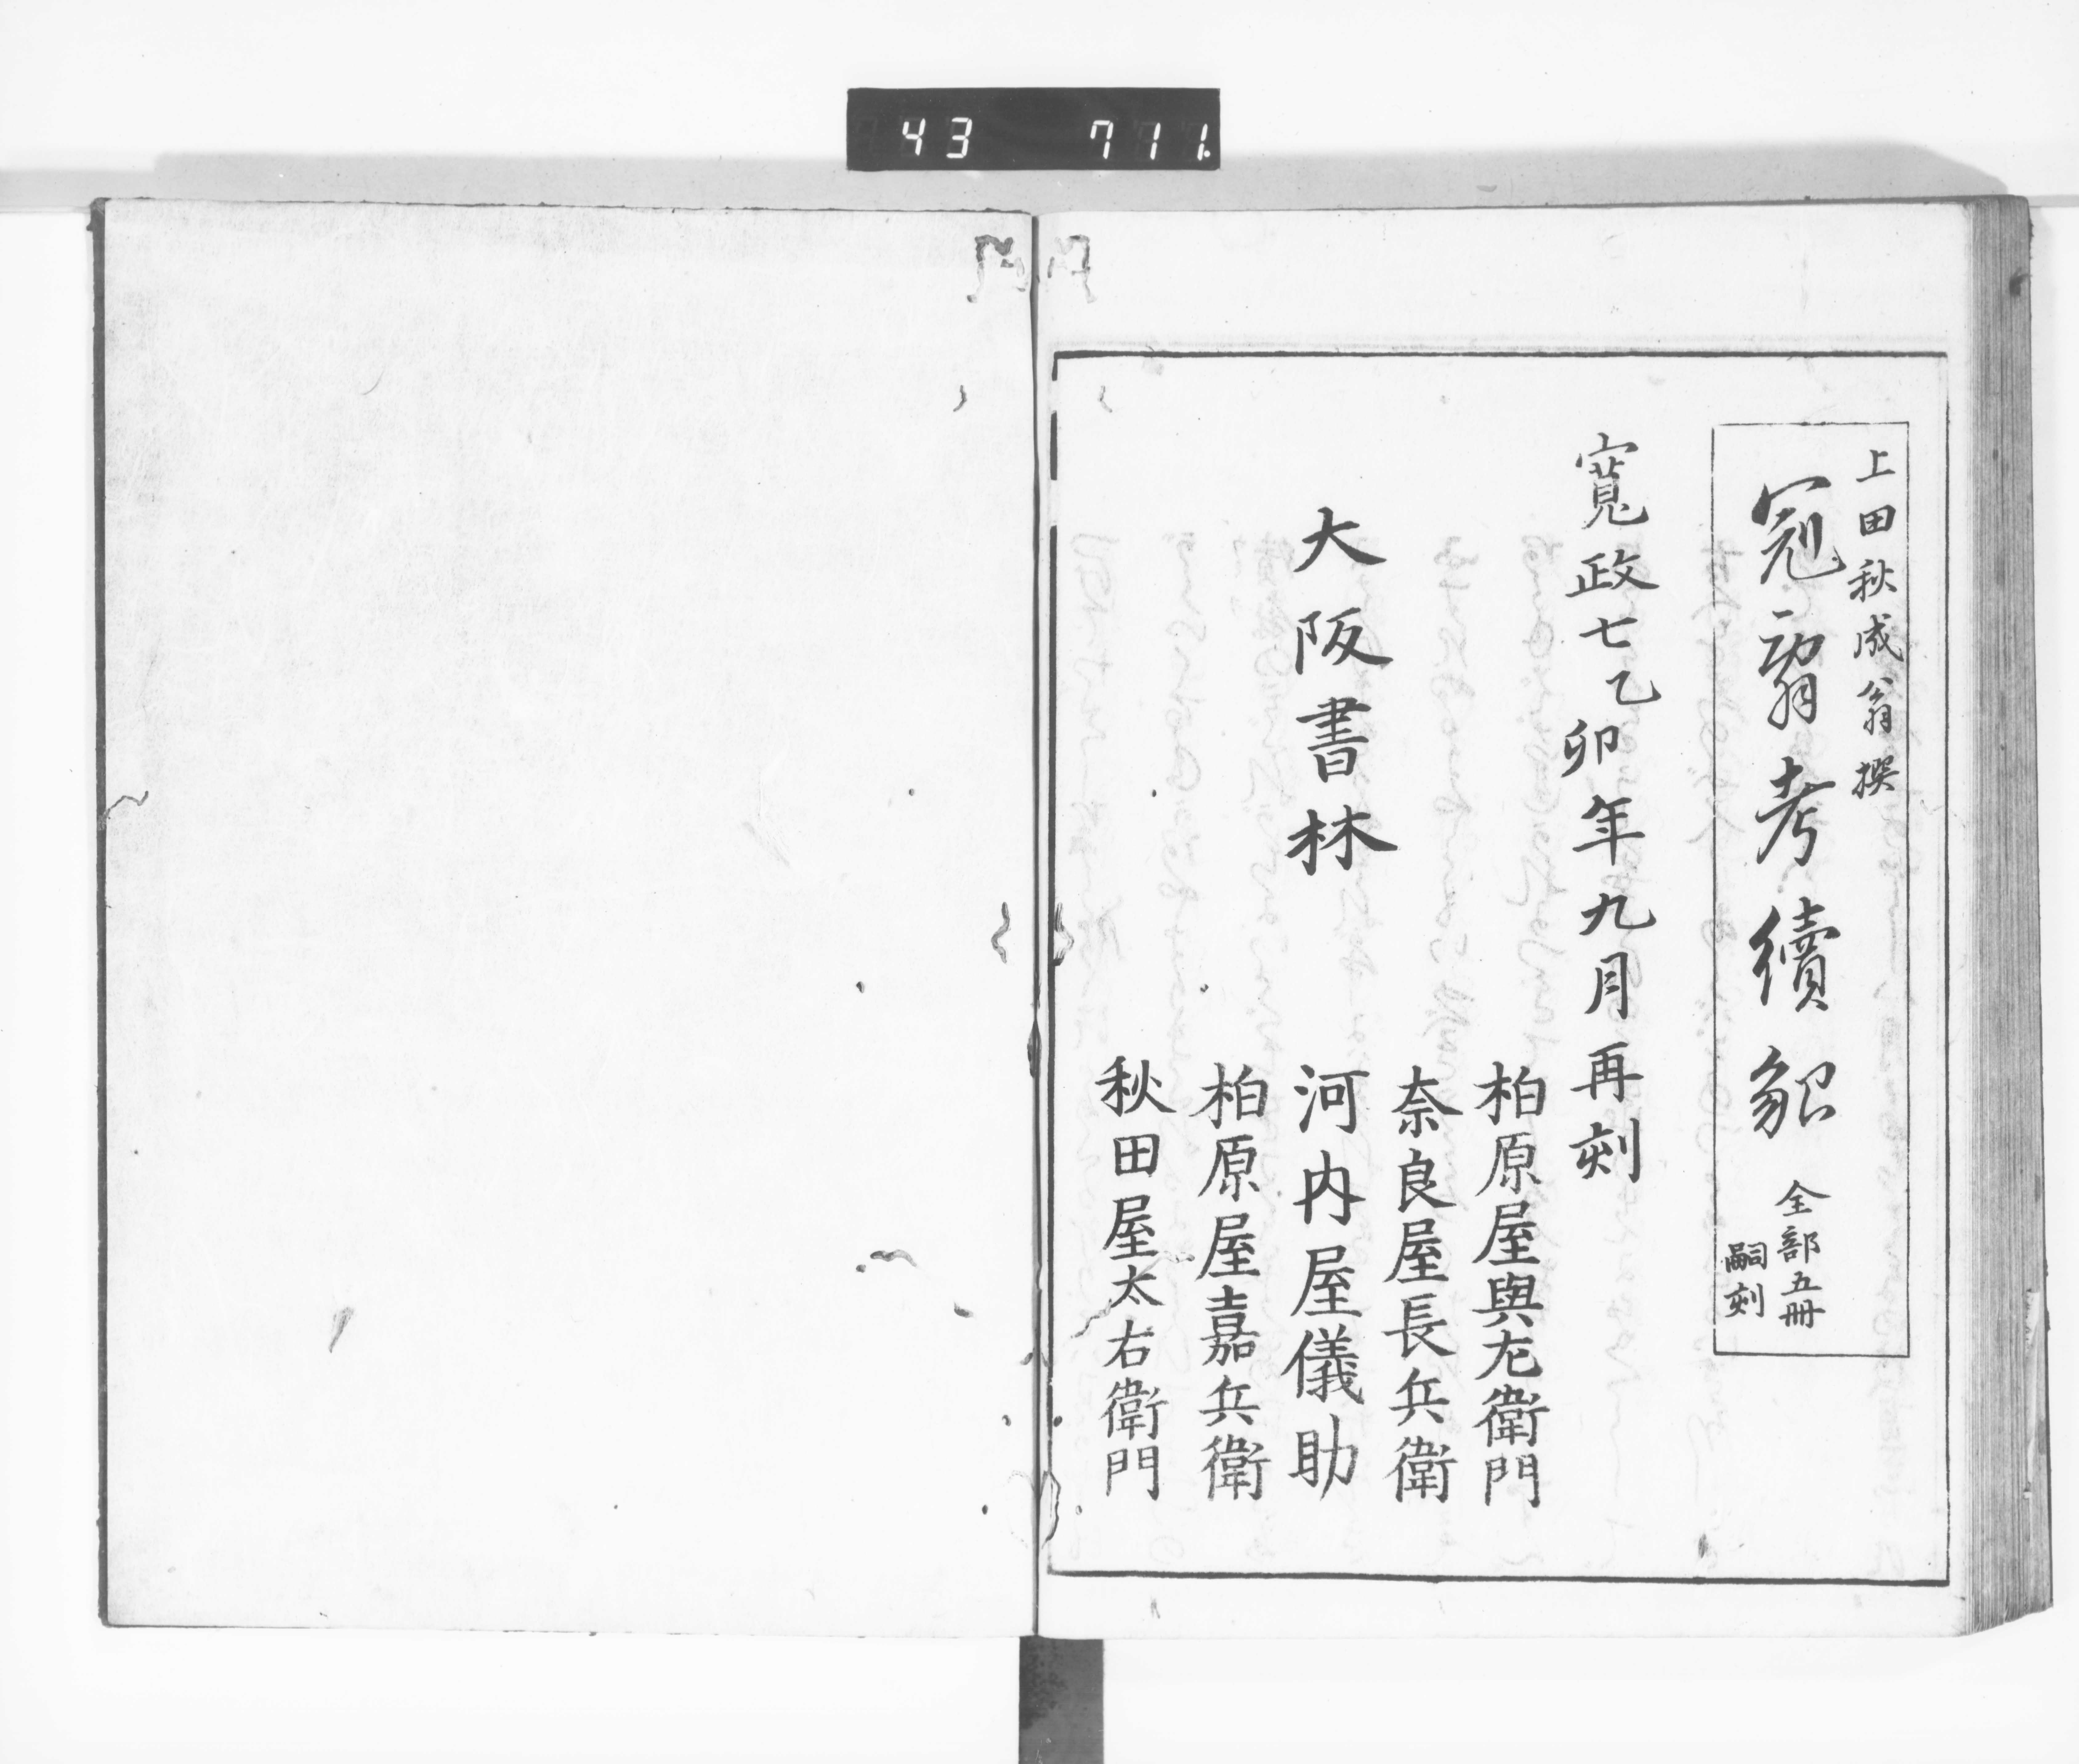 43 711
上田秋成翁撰
冠辭考續貂 全部五冊
嗣刻
寛政七乙卯年九月再刻
柏原屋與左衛門
奈良屋長兵衛
大阪書林 河内屋儀助
柏原屋嘉兵衛
秋田屋太右衛門